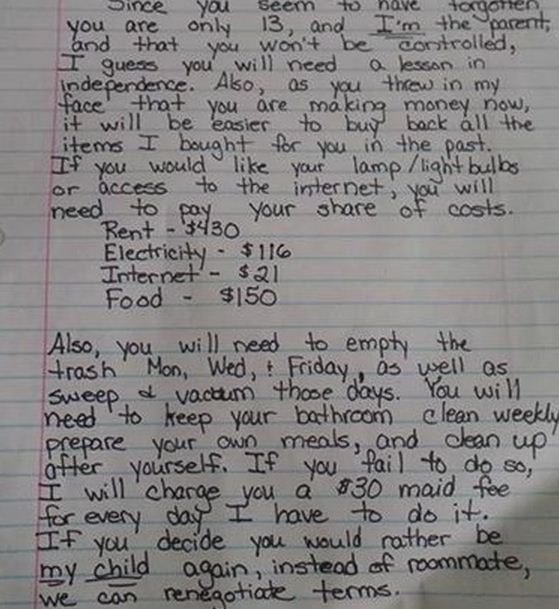 Since you seem to have forgotten
you are only 13, and I'm the parent,
and that you won't be controlled,
I guess you will need a lesson in
independence. Also, as you threw in my
face that you are making money now,
it will be easier to buy back all the
items I bought for you in the past.
If you would like your lamp/lightbulbs
or access to the internet, you will
need to pay your share of costs.
Rent - $430
Electricity - $116
Internet - $21
Food - $150
Also, you will need to empty the
trash Mon, Wed, + Friday, as well as
sweep & vacuum those days. You will
need to keep your bathroom clean weekly
prepare your own meals, and clean up
after yourself. If you fail to do so,
I will charge you a $30 maid fee
for every day I have to do it.
If you decide you would rather be
my child again, instead of roommate,
we can renegotiate terms.